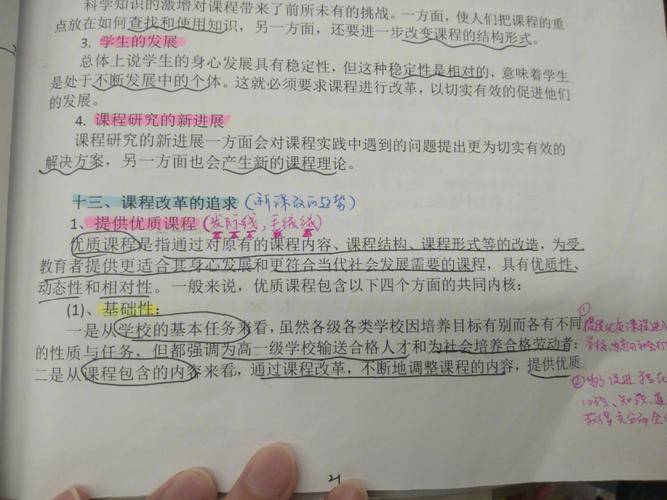 科学知识的激增对课程带来了前所未有的挑战。一方面，使人们把课程的重
点放在如何查找和使用知识，另一方面，还要进一步改变课程的结构形式。
3. 学生的发展
总体上说学生的身心发展具有稳定性，但这种稳定性是相对的，意味着学生
是处于不断发展中的个体。这就必须要求课程进行改革，以切实有效的促进他们
的发展。
4. 课程研究的新进展
课程研究的新进展一方面会对课程实践中遇到的问题提出更为切实有效的
解决方案，另一方面也会产生新的课程理论。
十三、课程改革的追求（新课改的趋势）
1、提供优质课程（发际线，毛绒绒）
优质课程是指通过对原有的课程内容、课程结构、课程形式等的改造，为受
教育者提供更适合其身心发展和更符合当代社会发展需要的课程，具有优质性、
动态性和相对性。一般来说，优质课程包含以下四个方面的共同内核：
(1)、基础性：
一是从学校的基本任务来看，虽然各级各类学校因培养目标有别而各有不同
的性质与任务，但都强调为高一级学校输送合格人才和为社会培养合格劳动者；
二是从课程包含的内容来看，通过课程改革，不断地调整课程的内容，提供优质
①
提供优质课程
②
促进
知识
获得充分的全
21